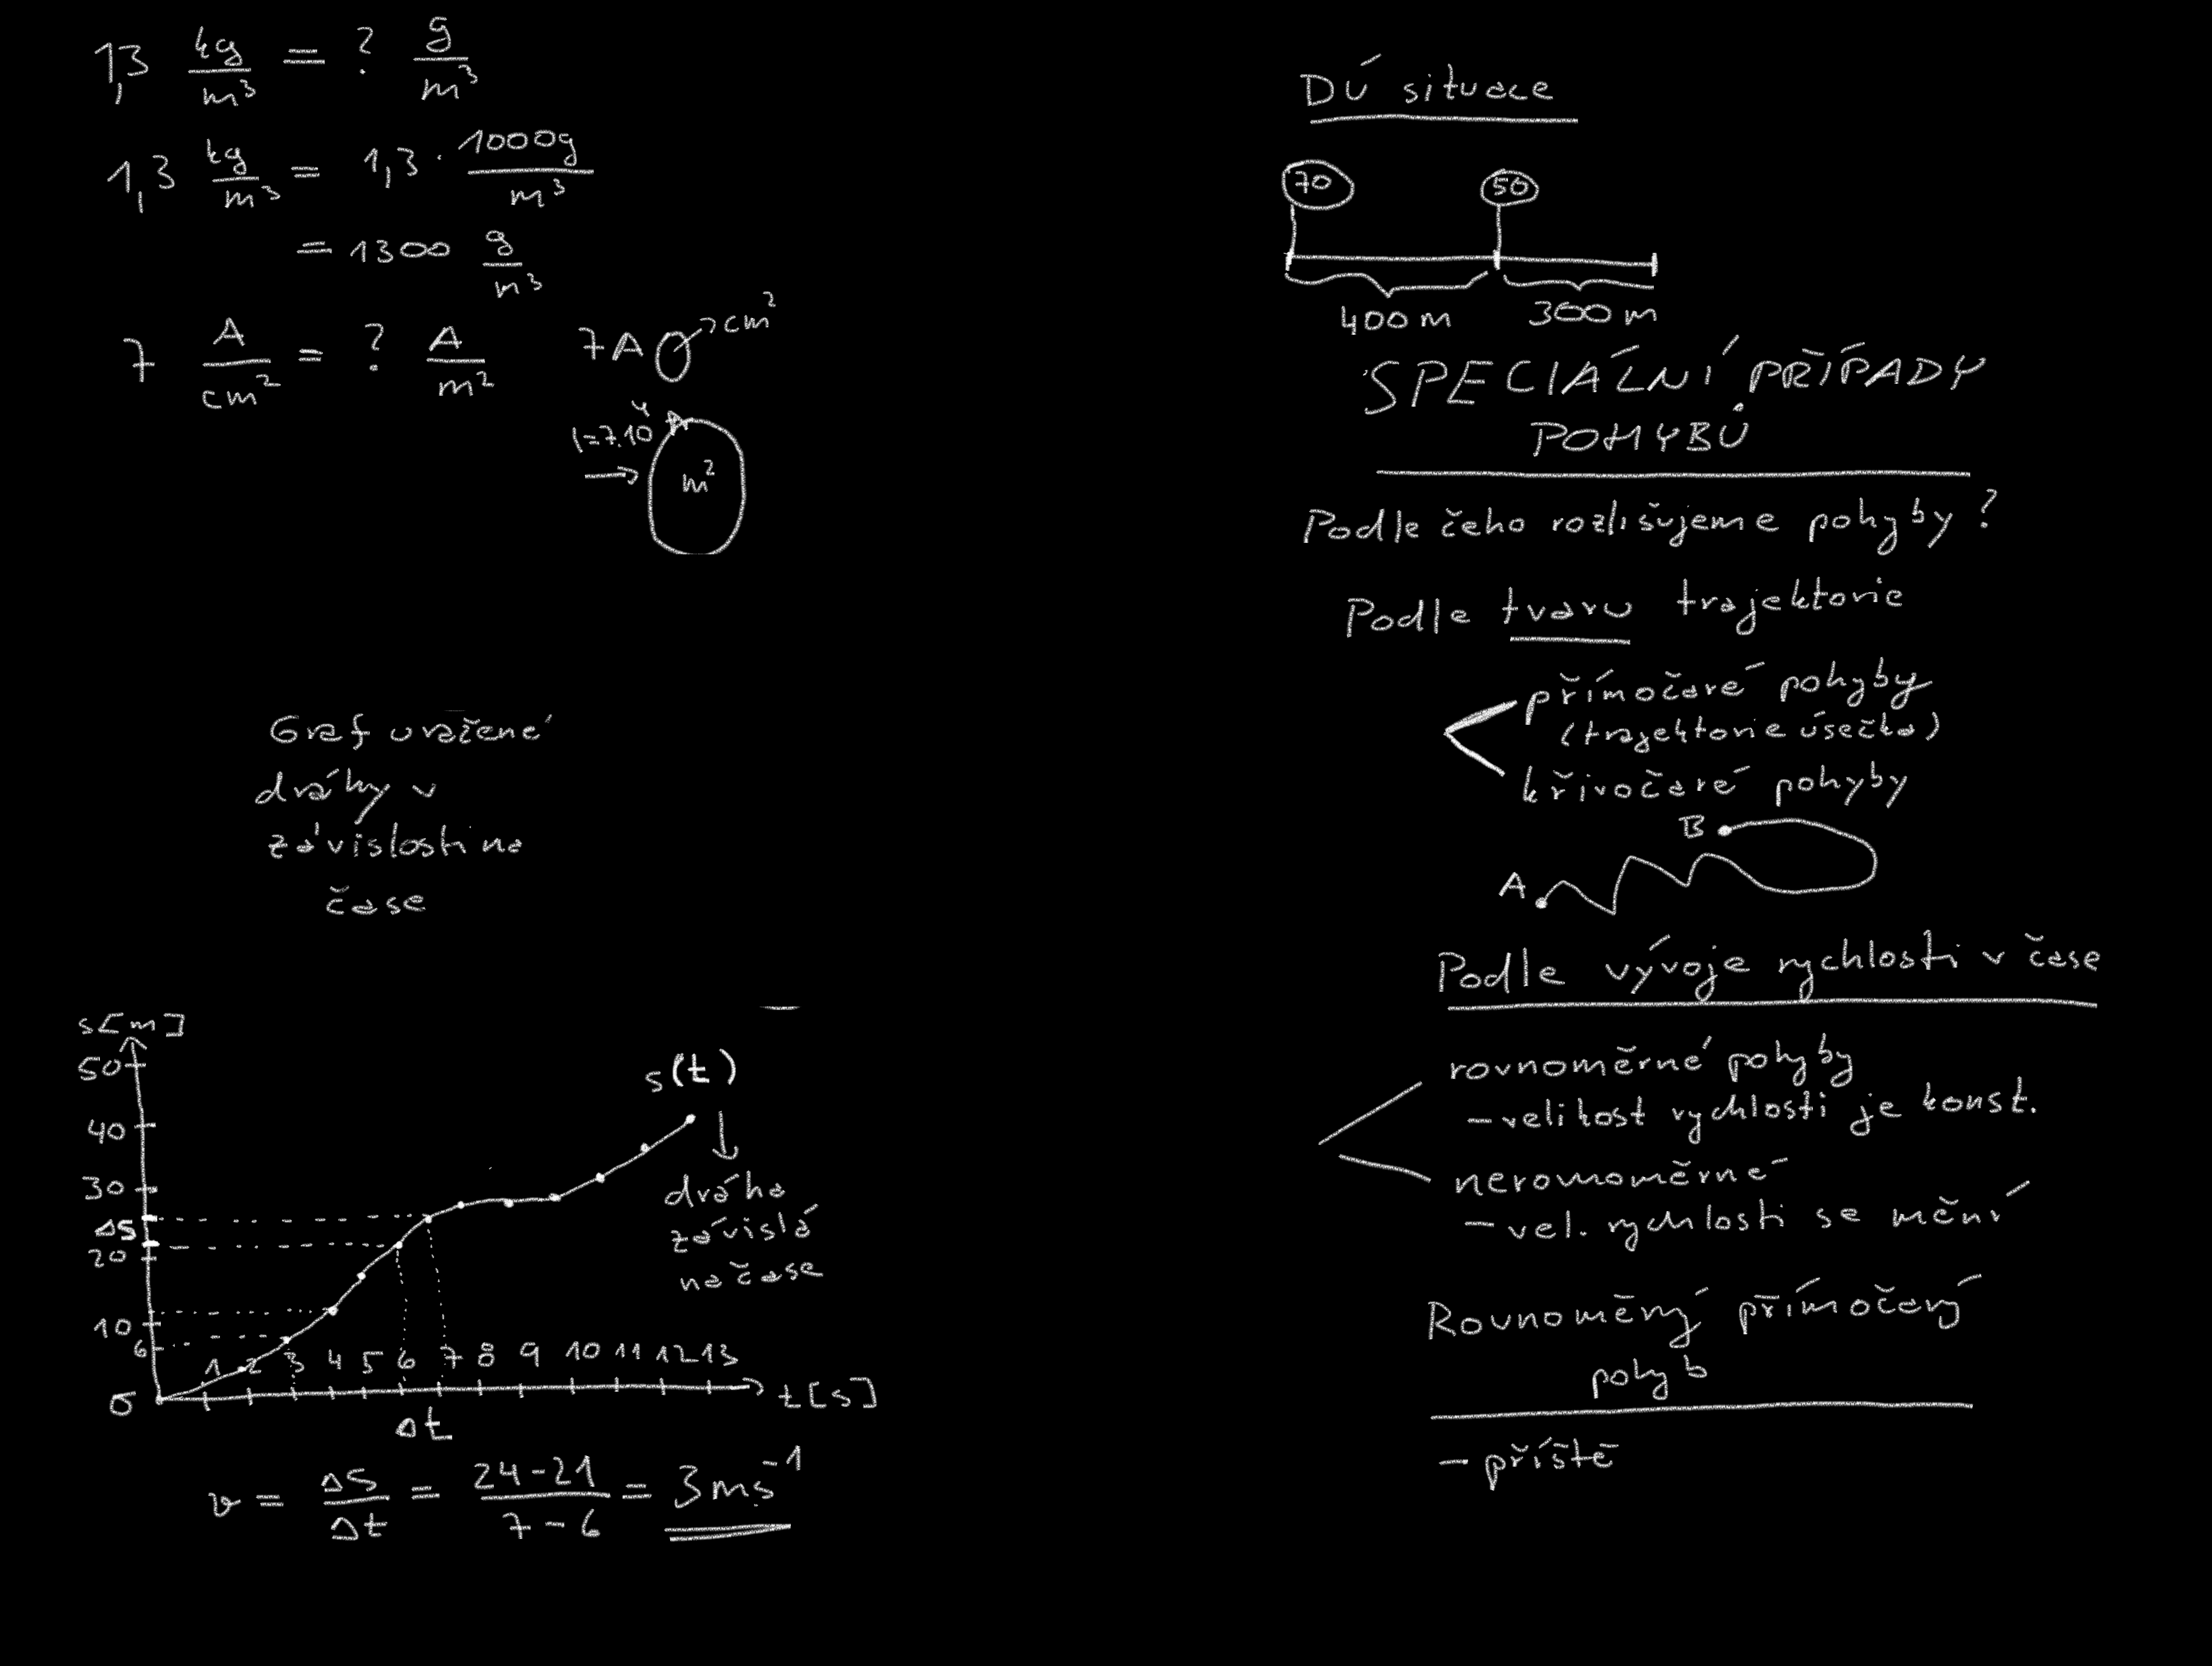 1,3 kg/m³ = ? g/m³
1,3 kg/m³ = 1,3 · 1000g/m³
= 1300 g/m³
7 A/cm² = ? A/m²
7A cm²
I=7.10⁴ A
→ m²
Graf uražené
dráhy v
závislosti na
čase
s[m]
50
40
30
Δs
20
10
6
0
1 2 3 4 5 6 7 8 9 10 11 12 13
t[s]
Δt
s(t)
↓
dráha
závislá
na čase
v = Δs/Δt = 24-21/7-6 = 3 ms⁻¹
DÚ situace
70 50
400 m 300 m
SPECIÁLNÍ PŘÍPADY
POHYBŮ
Podle čeho rozlišujeme pohyby?
Podle tvaru trajektorie
přímočaré pohyby
(trajektorie úsečka)
křivočaré pohyby
B
A
Podle vývoje rychlosti v čase
rovnoměrné pohyby
- velikost rychlosti je konst.
nerovnoměrné
- vel. rychlosti se mění
Rovnoměrný přímočarý
pohyb
- příště